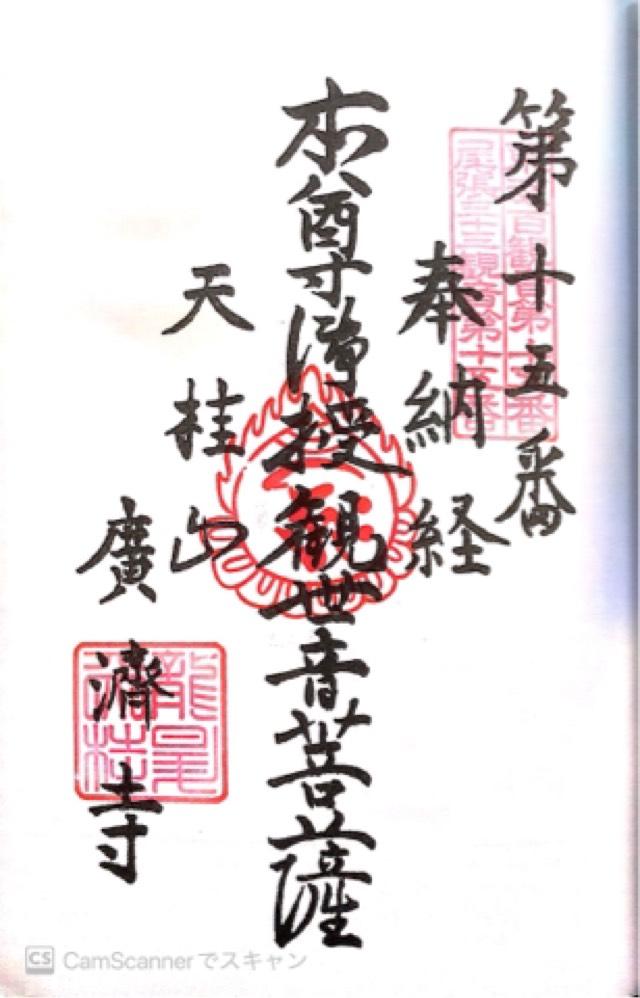 第十五番
尾張三十三観音第十五番
奉納経
本尊 授観世音菩薩
天桂山
廣濟寺
CS CamScannerでスキャン